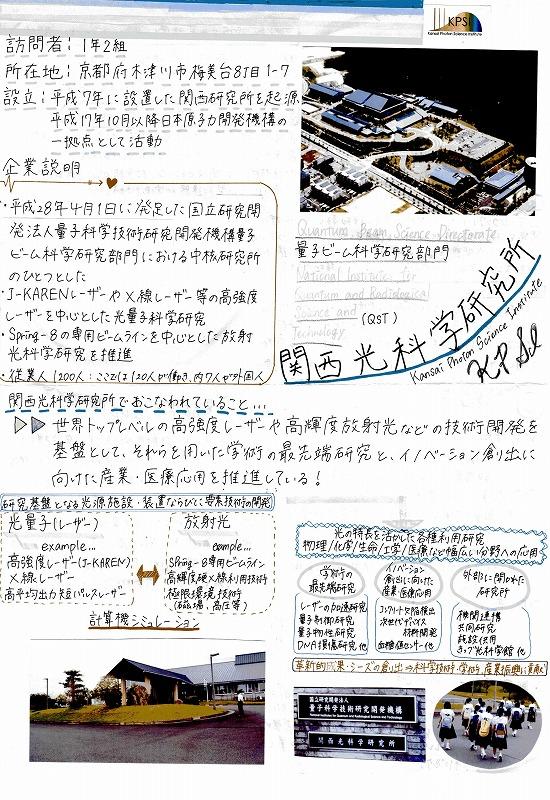 KPSI
Kansai Photon Science Institute
訪問者：1年2組
所在地：京都府木津川市梅美台8丁目1-7
設立：平成7年に設置した関西研究所を起源
平成17年10月以降日本原子力開発機構の
一拠点として活動
企業説明
・平成28年4月1日に発足した国立研究開
発法人量子科学技術研究開発機構量子
ビーム科学研究部門における中核研究所
のひとつとした
・J-KARENレーザーやX線レーザー等の高強度
レーザーを中心とした光量子科学研究
・Spring-8の専用ビームラインを中心とした放射
光科学研究を推進
・従業人1200人：ここでは120人が働き、内7人が外国人
Quantum Beam Science Directorate
量子ビーム科学研究部門
National Institute for
Quantum and Radiological
Science and
Technology
(QST)
関西光科学研究所
Kansai Photon Science Institute
KPSI
関西光科学研究所でおこなわれていること…
世界トップレベルの高強度レーザーや高輝度放射光などの技術開発を
基盤として、それらを用いた学術の最先端研究と、イノベーション創出に
向けた産業・医療応用を推進している！
研究基盤となる光源施設・装置ならびに要素技術の開発
光量子(レーザー)
example...
高強度レーザー(J-KAREN)
X線レーザー
高平均出力短パルスレーザー
放射光
example...
Spring-8専用ビームライン
高輝度硬X線利用技術
極限環境技術
(強磁場、高圧等)
計算機シミュレーション
光の特長を活かした各種利用研究
物理/化学/生命/工学/医療など幅広い分野への応用
学術の
最先端研究
レーザー加速研究
量子制御研究
量子物性研究
DNA損傷研究 他
イノベーション
創出に向けた
産業・医療応用
コンクリート欠陥検出
次世代デバイス
材料開発
血糖値センサー 他
外部に開かれた
研究所
機関連携
共同研究
施設供用
きっづ光科学館 他
革新的成果・シーズの創出⇒科学技術・学術・産業振興に貢献
国立研究開発法人
量子科学技術研究開発機構
National Institutes for Quantum and Radiological Science and Technology
関西光科学研究所